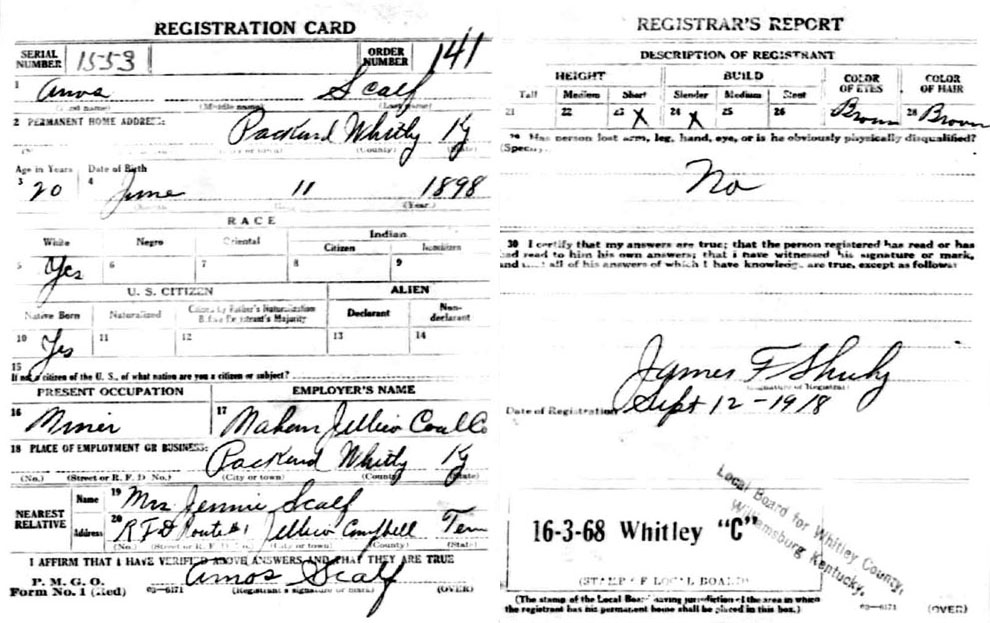 REGISTRATION CARD
SERIAL NUMBER 1553 ORDER NUMBER 141
1 Amos Scalf
(Middle name)
2 PERMANENT HOME ADDRESS:
Packard Whitly Ky
(County) (State)
Age in Years Date of Birth
3 20 4 June 11 1898
(Year)
RACE
White Negro Oriental Indian
Citizen
5 Yes 6 7 8 9
U. S. CITIZEN ALIEN
Native Born Naturalized Citizen by Father's Naturalization Before Registrant's Majority Declarant Non-declarant
10 Yes 11 12 13 14
15
If not a citizen of the U. S., of what nation are you a citizen or subject?
PRESENT OCCUPATION EMPLOYER'S NAME
16 Miner 17 Mahan Jellico Coal Co
18 PLACE OF EMPLOYMENT OR BUSINESS:
Packard Whitly Ky
(No.) (Street or R. F. D. No.) (City or town) (County) (State)
NEAREST RELATIVE
Name 19 Mrs Jennie Scalf
Address 20 RFD Route #1 Jellico Campbell Ten
(No.) (Street or R. F. D. No.) (City or town) (County) (State)
I AFFIRM THAT I HAVE VERIFIED ABOVE ANSWERS AND THAT THEY ARE TRUE
P. M. G. O.
Form No. 1 (Red) 03—6171 Amos Scalf
(Registrant's signature or mark) (OVER)
REGISTRAR'S REPORT
DESCRIPTION OF REGISTRANT
HEIGHT BUILD COLOR OF EYES COLOR OF HAIR
Tall Medium Short Slender Medium Stout
21 22 23 X 24 X 25 26 Brown 28 Brown
29 Has person lost arm, leg, hand, eye, or is he obviously physically disqualified?
(Specify)
No
30 I certify that my answers are true; that the person registered has read or has
had read to him his own answers; that I have witnessed his signature or mark,
and that all of his answers of which I have knowledge are true, except as follows:
James F
(Signature of Registrar)
Date of Registration Sept 12-1918
Local Board for Whitley County,
Williamsburg Kentucky.
16-3-68 Whitley "C"
(STAMP OF LOCAL BOARD)
(The stamp of the Local Board having jurisdiction of the area in which
the registrant has his permanent home shall be placed in this box.)
03—6171 (OVER)